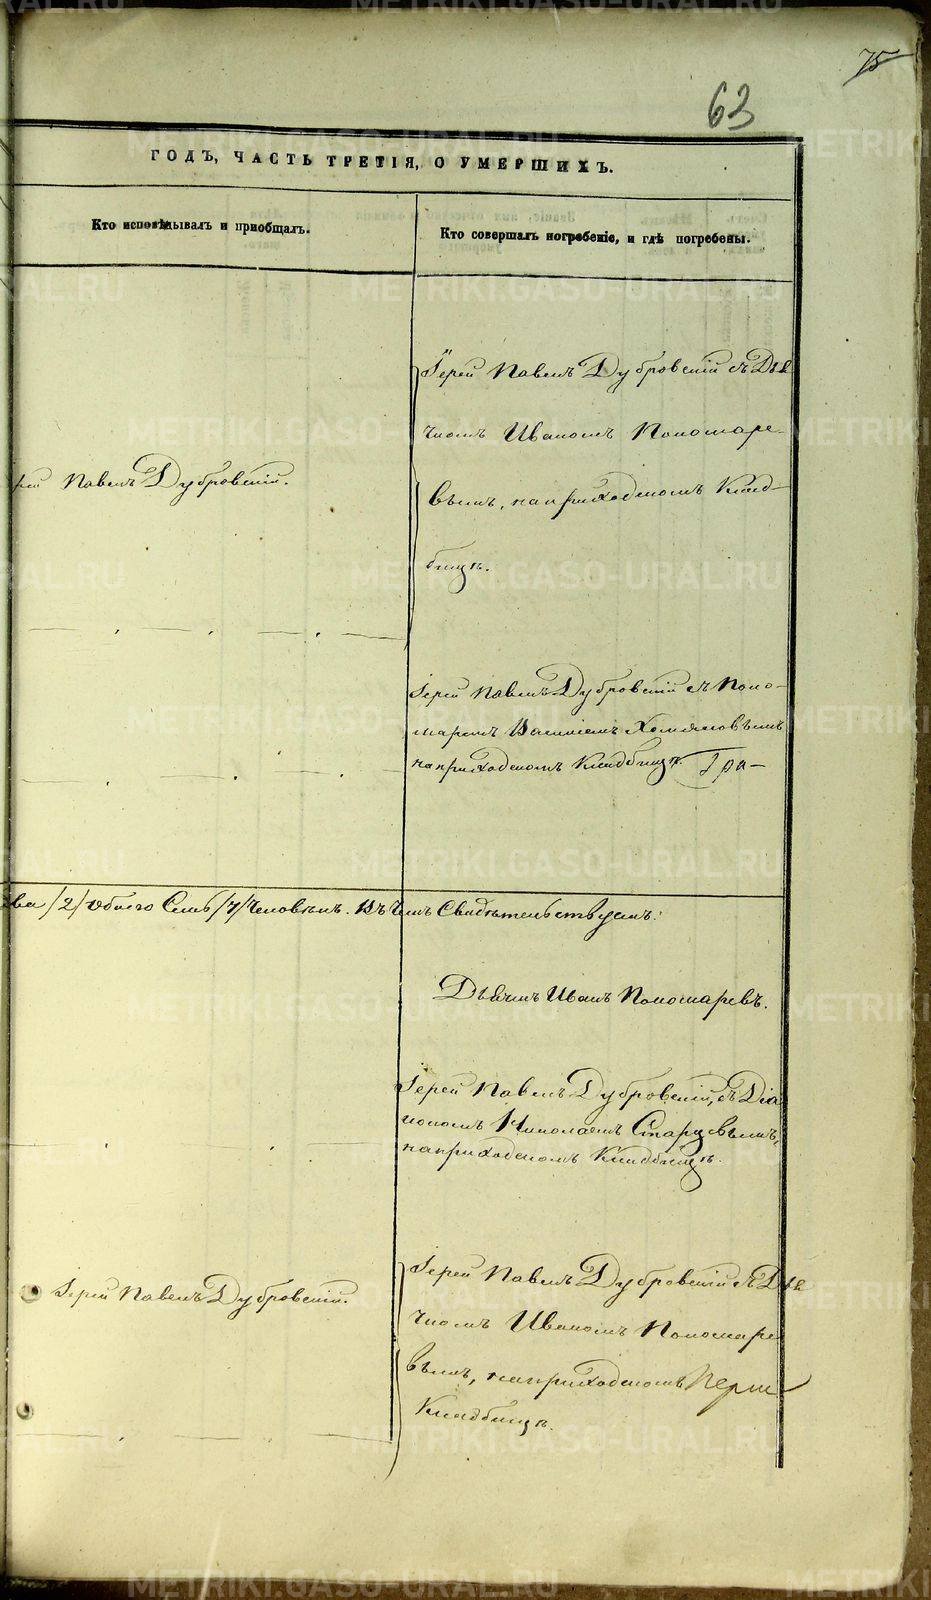 75
63
ГОДЪ, ЧАСТЬ ТРЕТІЯ, О УМЕРШИХЪ.
Кто исповѣдывалъ и приобщалъ.
Кто совершалъ погребеніе, и гдѣ погребены.
Іерей Павелъ Дубровскій съ Дья
чкомъ Иваномъ Пономаре-
рей Павелъ Дубровскій.
вымъ, на приходскомъ Клад-
бищѣ.
Іерей Павелъ Дубровскій съ Поно-
маремъ Василіемъ Хомяковымъ
на приходскомъ Кладбищѣ. Гра-
ва /2/ обоего Семь /7/ Человѣкъ. Въ чемъ Свидѣтельствуемъ:
Дьячекъ Иванъ Пономаревъ.
Іерей Павелъ Дубровскій, съ Діа
кономъ Николаемъ Старцевымъ,
на приходскомъ Кладбищѣ.
Іерей Павелъ Дубровскій съ Дья
Іерей Павелъ Дубровскій.
чкомъ Иваномъ Пономаре
вымъ, на приходскомъ
Кладбищѣ.
METRIKI.GASO-URAL.RU